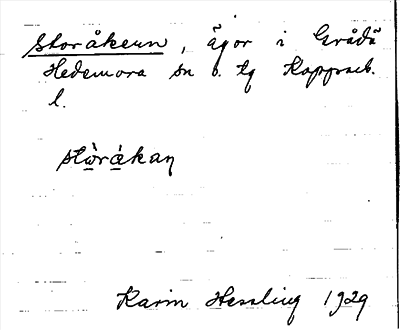 Storåkern, ägor i Grådö
Hedemora sn o. tg Kopparb.
l.
stòråkaṇ
Karin Hessling 1929